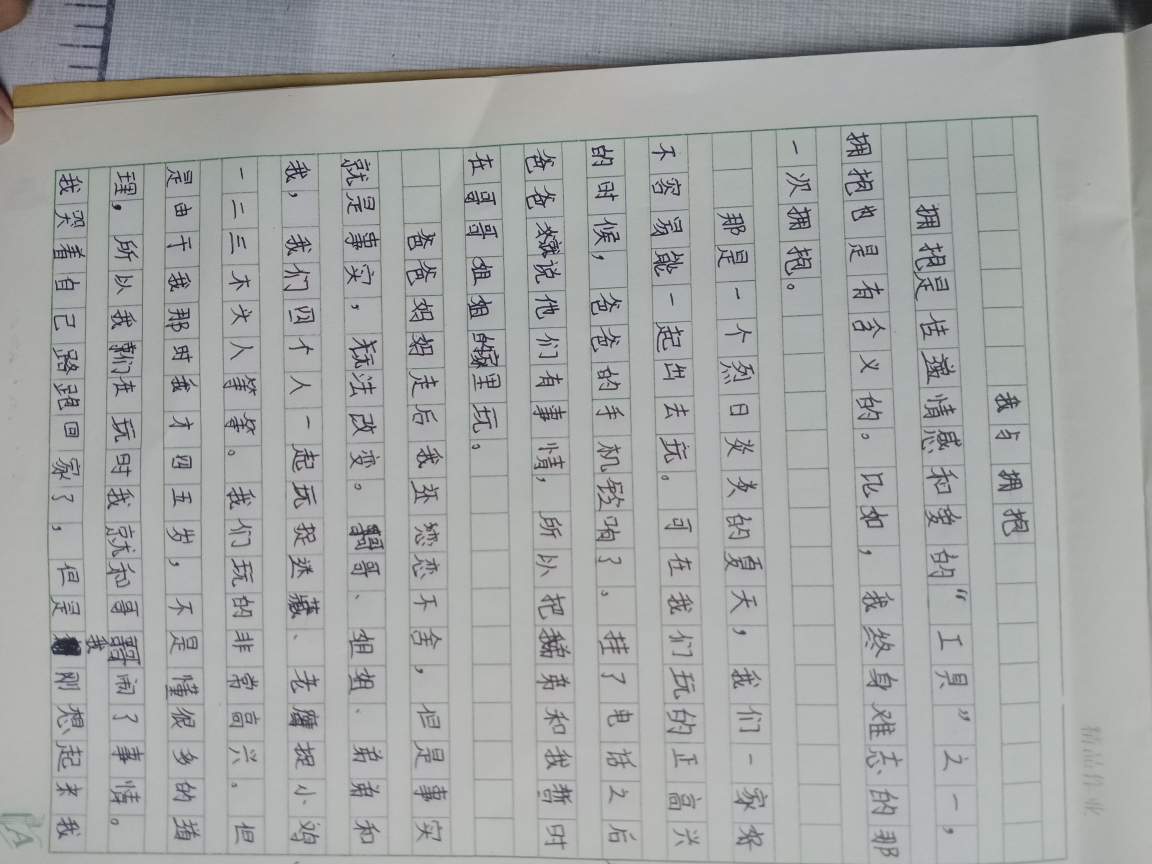 我与拥抱
拥抱是传递情感和爱的“工具”之一，
拥抱也是有含义的。比如，我终身难志的那
一次拥抱。
那是一个烈日炎炎的夏天，我们一家好
不容易能一起出去玩。可在我们玩的正高兴
的时候，爸爸的手机铃响了。挂了电话之后
爸爸就说他们有事情，所以把弟弟和我暂时
在哥哥姐姐的家里玩。
爸爸妈妈走后我还恋恋不舍，但是事实
就是事实，无法改变。哥哥、姐姐、弟弟和
我，我们四个人一起玩捉迷藏、老鹰捉小鸡
一二三木头人等等。我们玩的非常高兴。但
是由于我那时我才四五岁，不是懂很多的道
理，所以我们在玩时我就和哥哥闹了事情。
我哭着自己路跑回家了，但是我刚想起来我
精品作业